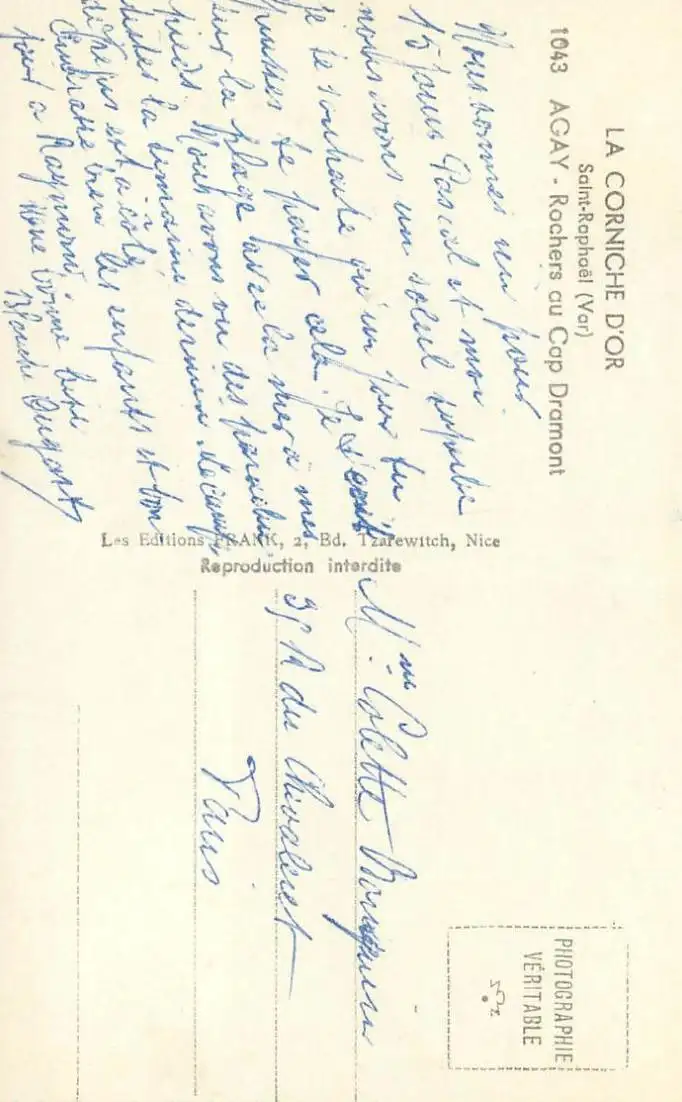 LA CORNICHE D'OR
Saint-Raphaël (Var)
1043 AGAY - Rochers au Cap Dramont
Nous sommes ici pour
15 jours Pascal et moi
nous avons un soleil superbe
je te souhaite qu'un jour tu
puisses te payer cela. Je
sur la plage avec la mer à mes
pieds. Nous avons vu des
toutes la semaine dernière
est à côté
bien les enfants et bon
jour à Raymond,
Une bonne bise
Blanche
Les Editions FRANK, 2, Bd. Tzarewitch, Nice
Reproduction interdite
Mme Colette
35 R du Chevaleret
Paris
PHOTOGRAPHIE
VÉRITABLE